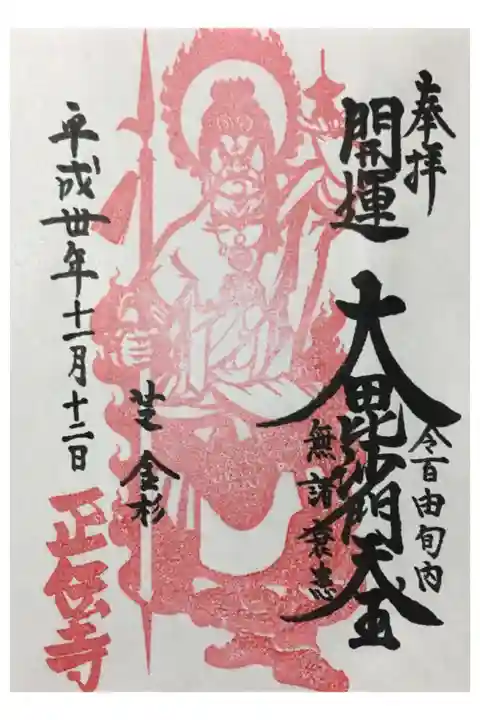 奉拝
開運 大毘沙門天王
令百由旬内
無諸衰患
芝 金杉
平成卅年十一月十二日
正伝寺